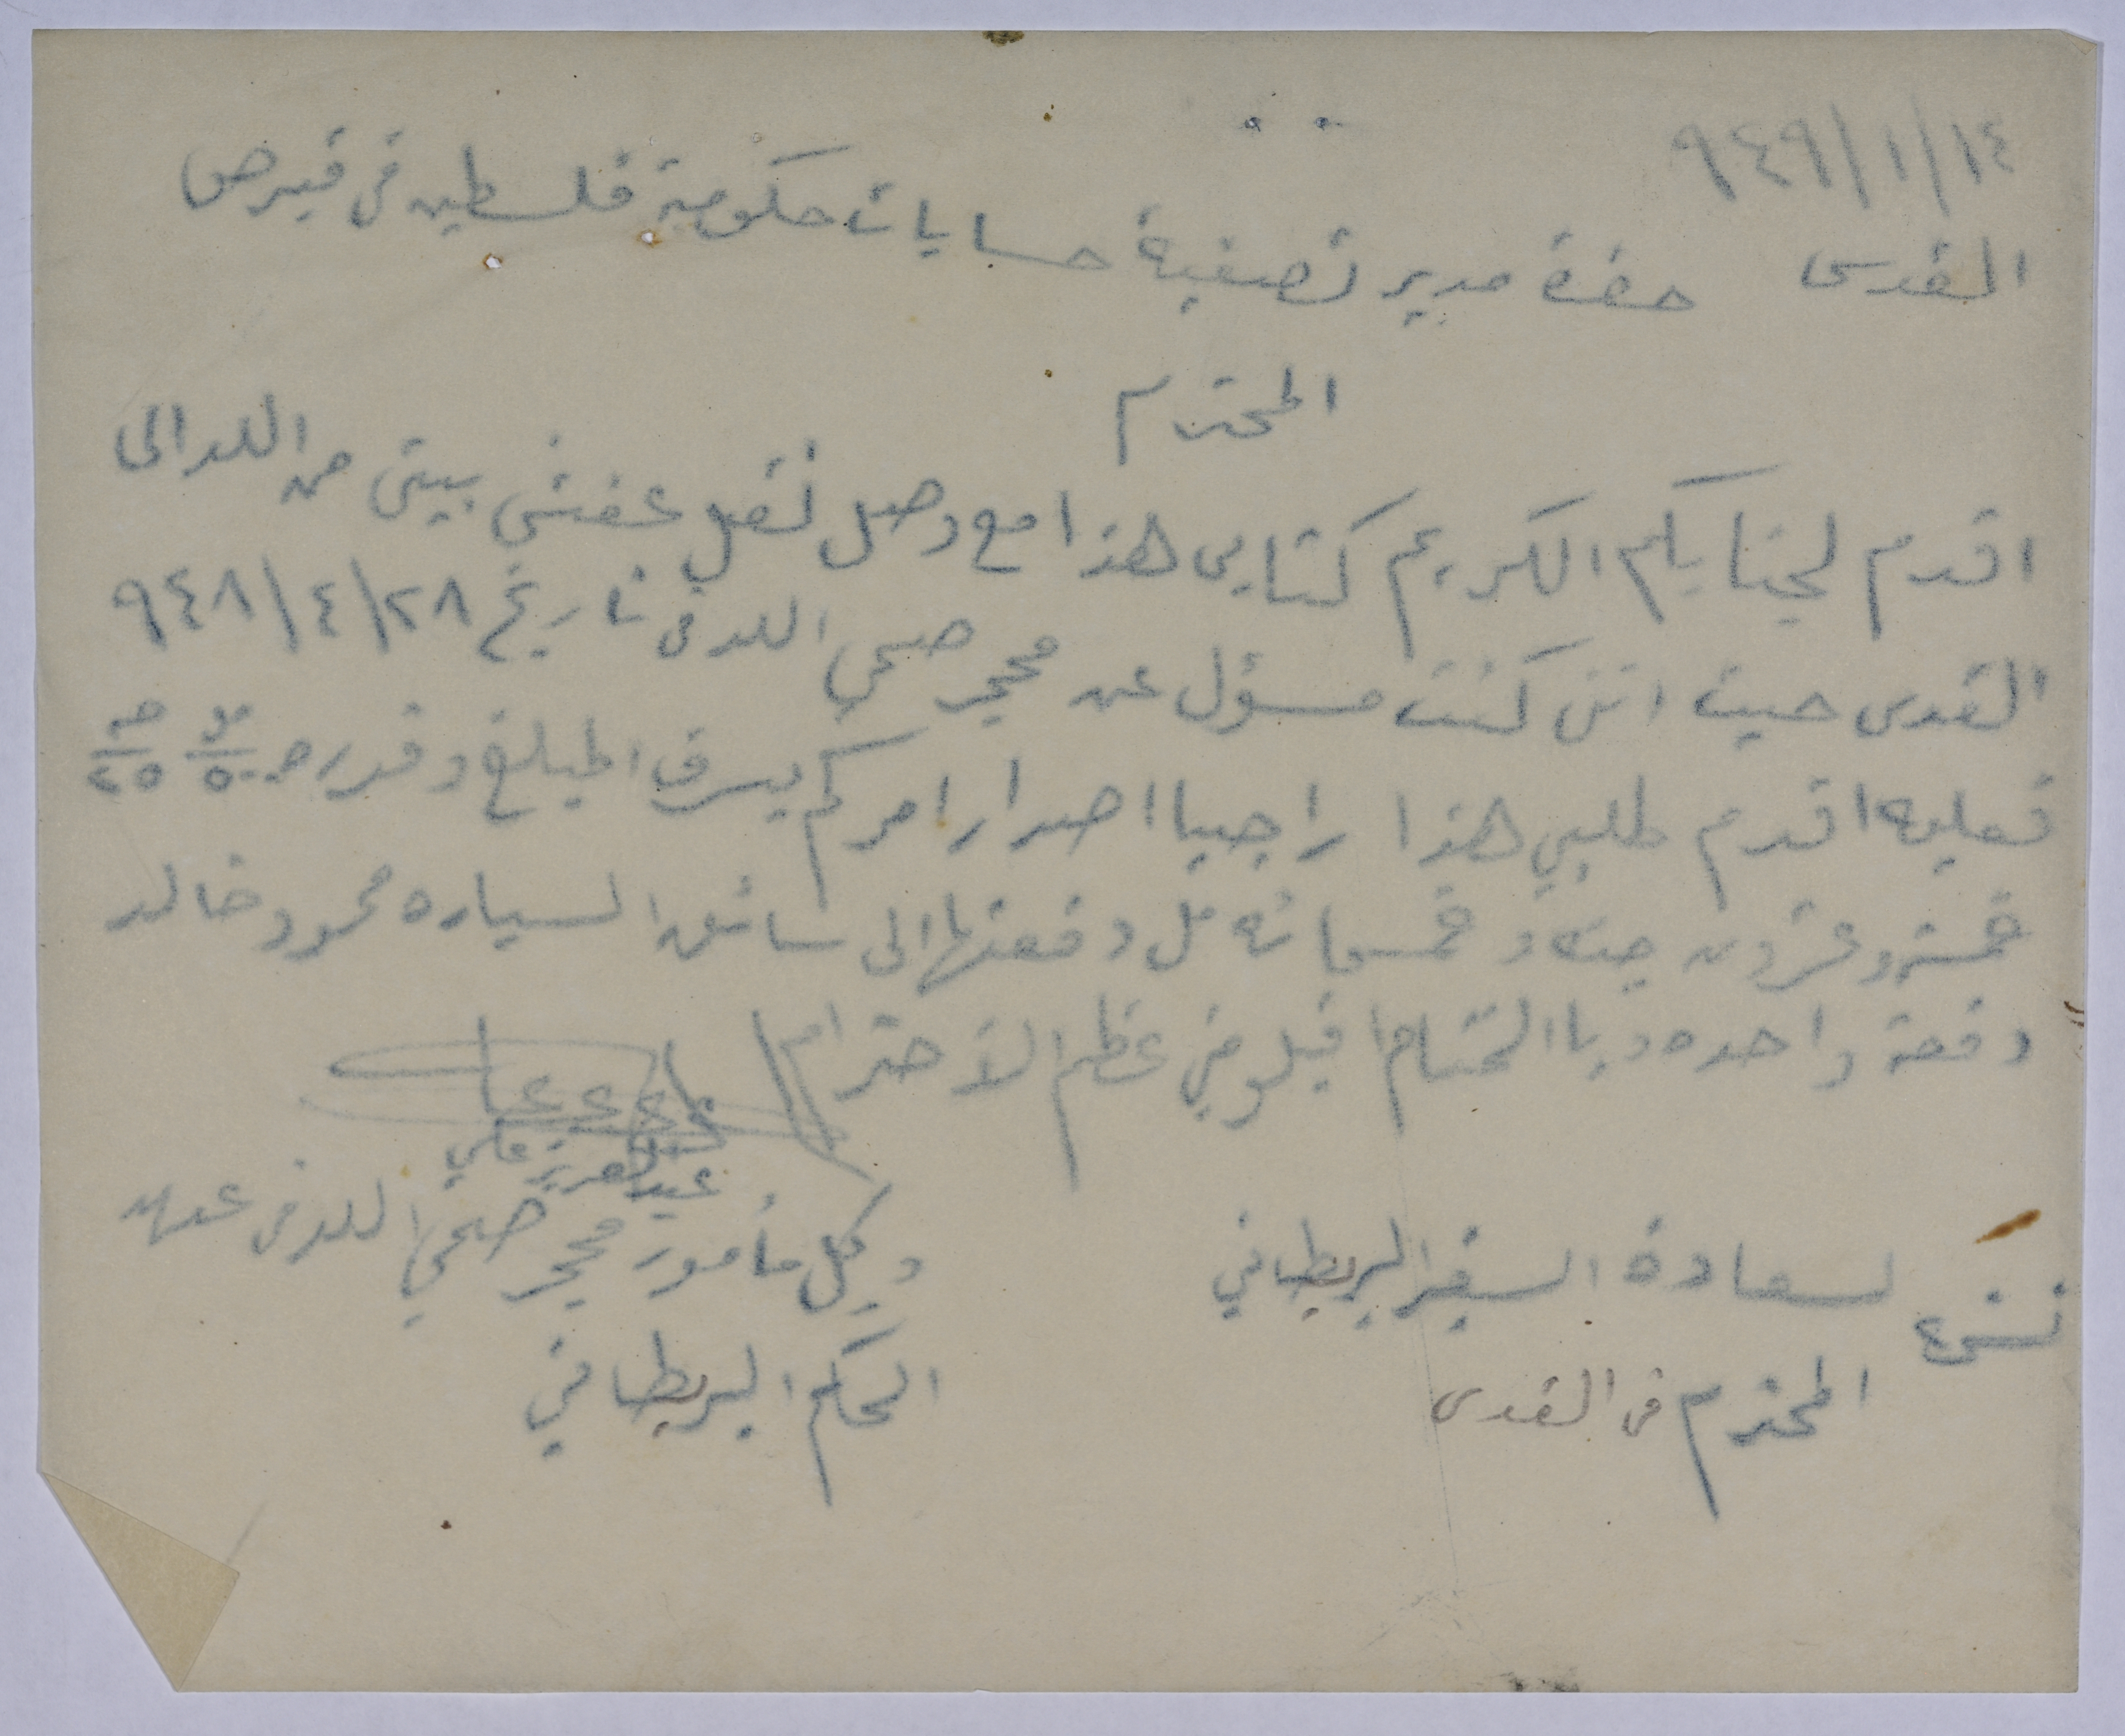 ٩٤٩/١/١٤
القدس حضرة مدير تصفية حسابات حكومة فلسطين في قبرص
المحترم
اقدم لجنابكم الكريم كتابي هذا مع وصل نقل عفش بيتي من اللد الى
القدس حيث انني كنت مسؤل عن محجر صحي اللد في تاريخ ٩٤٨/٤/٢٨
فعليه اقدم طلبي هذا راجيا اصدار امركم بصرف المبلغ وقدره ٥٠٠ مل ٢٥ جنيه
خمسة وعشرون جنيه وخمسمائه مل دفعتها الى سائق السياره محمود خالد
دفعة واحده وبا الختام اقبلو مني عظم الأحترام
عبد العزيز علي
وكيل مأمور محجر صحي اللد في عهد
الحكم البريطاني
نسخه لسعادة السفير البريطاني
المحترم في القدس